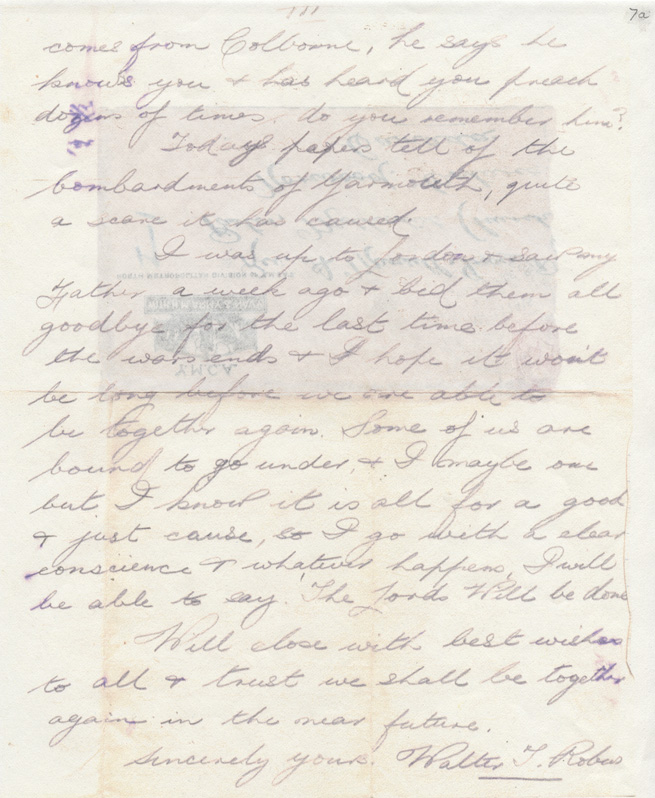 III
7a
comes from Colborne, he says he
knows you & has heard you preach
dozens of times. do you remember him?
Todays papers tell of the
bombardments of Yarmouth, quite
a scare it has caused.
I was up to London & saw my
Father a week ago & bid them all
goodbye for the last time before
the wars ends & I hope it won't
be long before we are able to
be together again. Some of us are
bound to go under, & I maybe one
but I know it is all for a good
& just cause, so I go with a clear
conscience & whatever happens, I will
be able to say. The Lords Will be done
Will close with best wishes
to all & trust we shall be together
again in the near future.
sincerely yours. Walter T. Robus
Y.M.C.A.